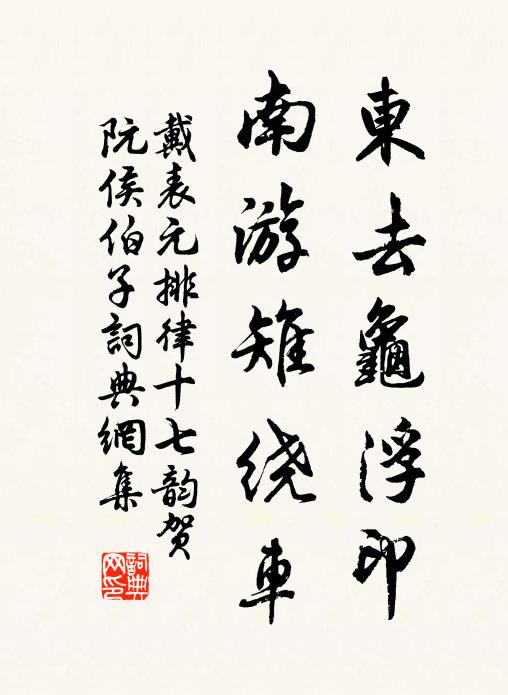 東去龜浮印
南游雉绕車
戴表元排律十七韵贺
阮侯伯子詞典網集
詞典网印